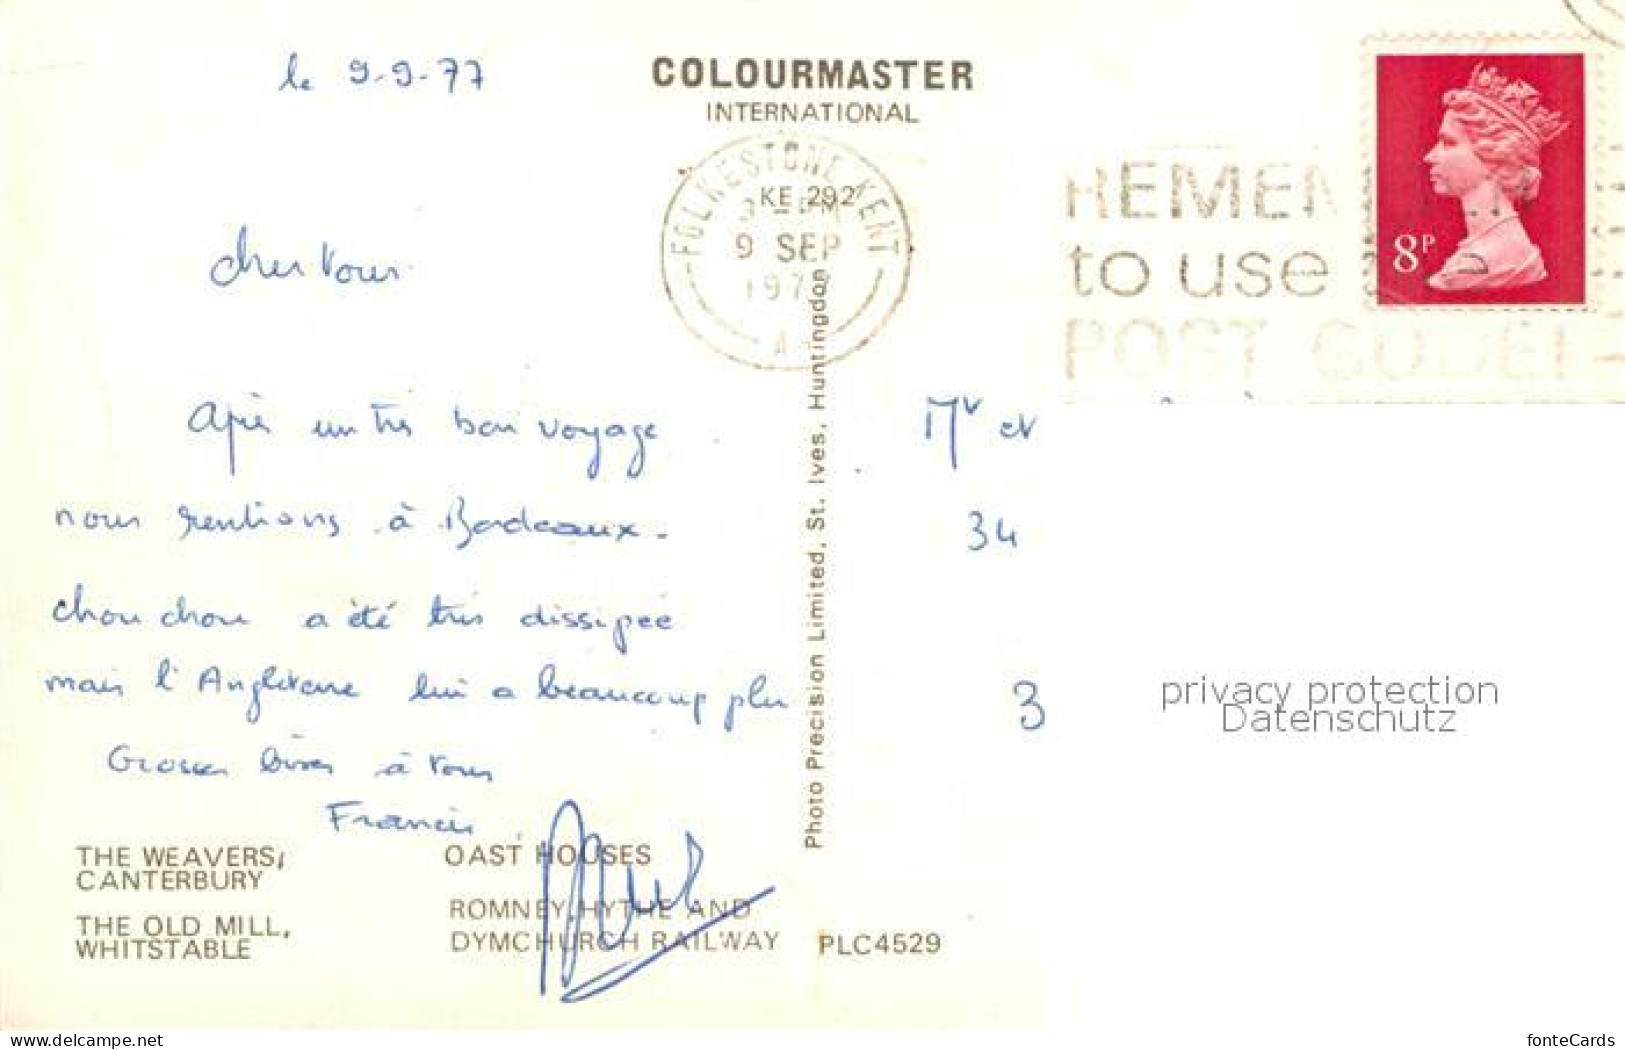 le 9-9-77
COLOURMASTER
INTERNATIONAL
FOLKESTONE KENT
KE 292
9 SEP
197
A
REMEM
to use the
POST CODE!
8P
Cher tous
Après un très bon voyage
nous rentrons à Bordeaux.
chouchou a été très dissipée
mais l'Angleterre lui a beaucoup plu
Grosses bises à tous
Francis
Mr et
34
3
Photo Precision Limited, St. Ives, Huntingdon
privacy protection
Datenschutz
THE WEAVERS,
CANTERBURY
THE OLD MILL,
WHITSTABLE
OAST HOUSES
ROMNEY, HYTHE AND
DYMCHURCH RAILWAY
PLC4529
www.delcampe.net
fonteCards